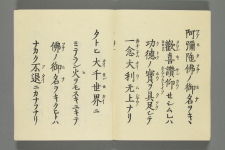 阿彌陀佛ノ御名ヲキヽ
歡喜讃仰セシムレハ
功德ノ寶ヲ具足シテ
一念大利无上ナリ
タトヒ大千世界ニ
ミテラン火ヲモスキユキテ
佛ノ御名ヲキクヒトハ
ナカク不退ニカナフナリ